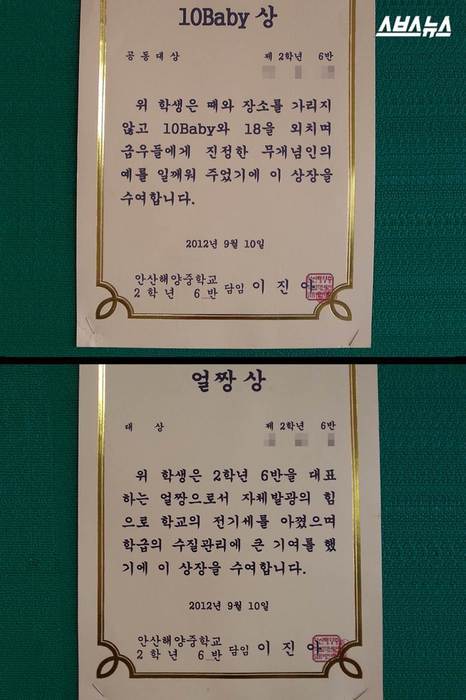 스브스뉴스
10Baby 상
공동대상 제 2학년 6반
위 학생은 때와 장소를 가리지
않고 10Baby와 18을 외치며
급우들에게 진정한 무개념인의
예를 일깨워 주었기에 이 상장을
수여합니다.
2012년 9월 10일
안산해양중학교
2학년 6반 담임 이 진 아
얼짱상
대 상 제 2학년 6반
위 학생은 2학년 6반을 대표
하는 얼짱으로서 자체발광의 힘
으로 학교의 전기세를 아꼈으며
학급의 수질관리에 큰 기여를 했
기에 이 상장을 수여합니다.
2012년 9월 10일
안산해양중학교
2학년 6반 담임 이 진 아